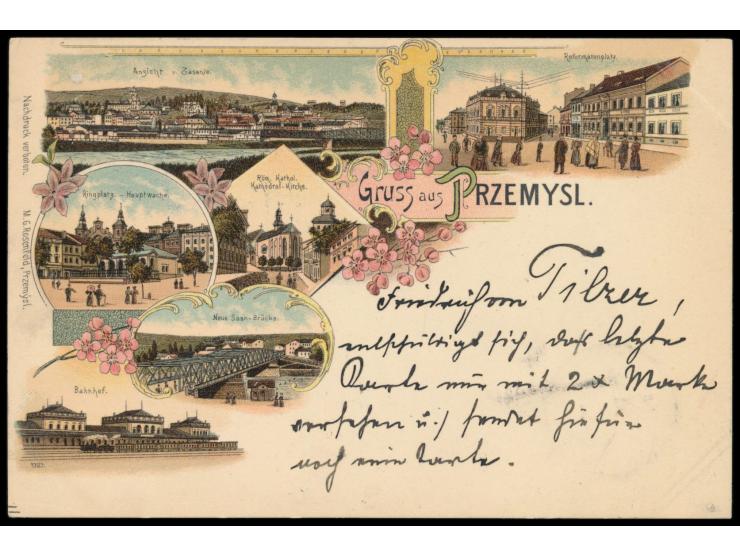 Ansicht v. Zasanie.
Reformatenplatz.
Nachdruck verboten.
M. G. Rosenfeld, Przemysl.
Ringplatz. - Hauptwache.
Röm. Kathol.
Kathedral-Kirche.
Gruss aus Przemysl.
Neue Saan-Brücke.
Bahnhof.
Friedrich von Tilzer,
entschuldigt sich, daß letzte
Karte nur mit 2 x Marke
versehen u. sendet hiefür
noch eine Karte.